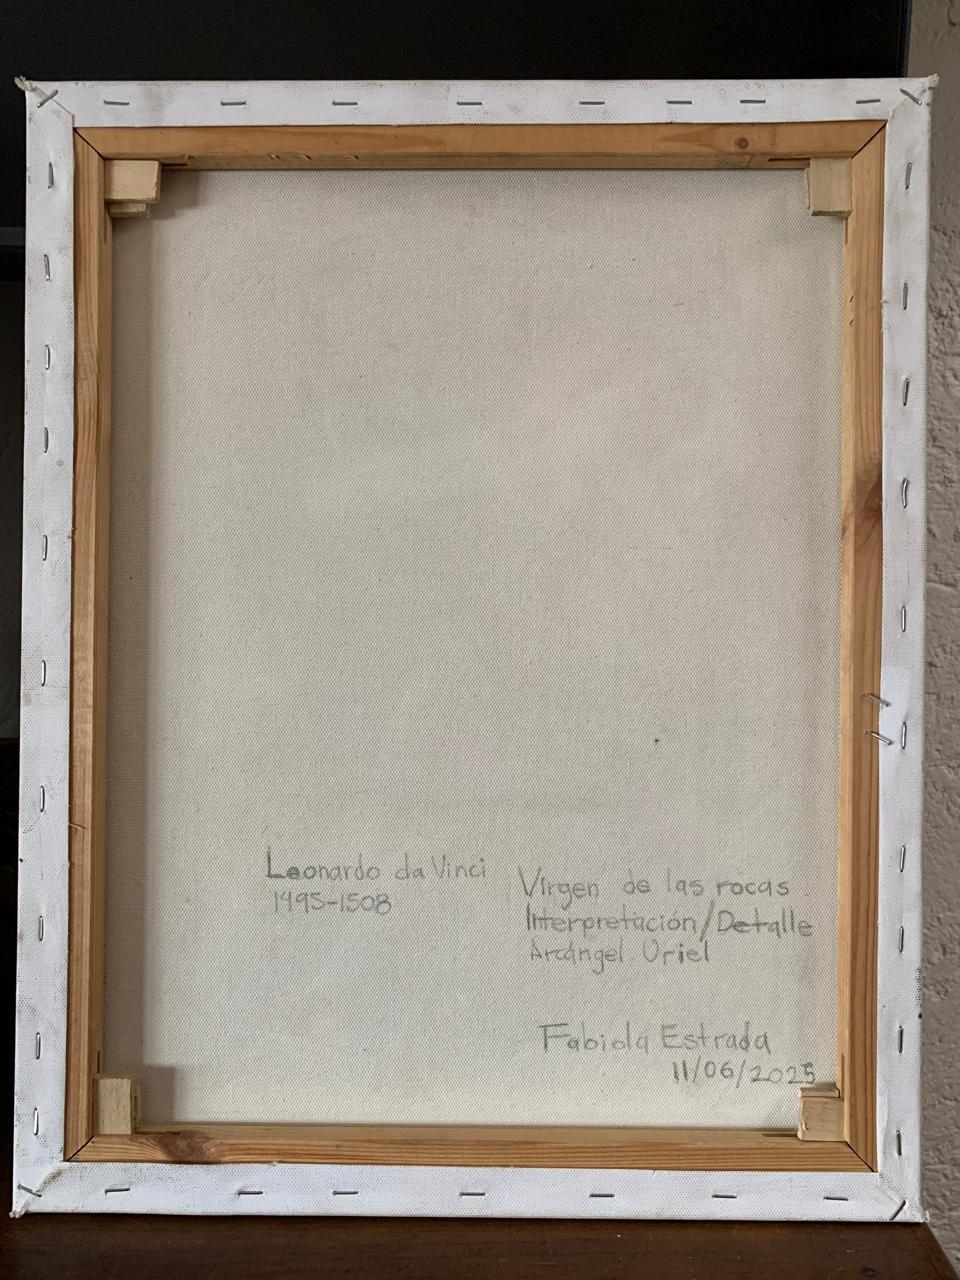 Leonardo da Vinci
1495-1508
Virgen de las rocas
Interpretación/Detalle
Arcángel Uriel
Fabiola Estrada
11/06/2025